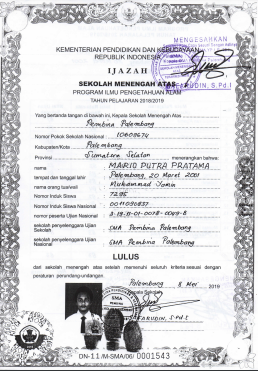 MENGESAHKAN
KEMENTERIAN PENDIDIKAN DAN KEBUDAYAAN
REPUBLIK INDONESIA
IJAZAH
SEKOLAH MENENGAH ATAS
PROGRAM ILMU PENGETAHUAN ALAM
TAHUN PELAJARAN 2018/2019
Yang bertanda tangan di bawah ini, Kepala Sekolah Menengah Atas
Pembina Palembang
Nomor Pokok Sekolah Nasional 10609674
Kabupaten/Kota Palembang
Provinsi Sumatera Selatan menerangkan bahwa:
nama MARIO PUTRA PRATAMA
tempat dan tanggal lahir Palembang, 20 Maret 2001
nama orang tua/wali Muhammad
Nomor Induk Siswa 7296
Nomor Induk Siswa Nasional
nomor peserta Ujian Nasional
sekolah penyelenggara Ujian Sekolah SMA Pembina Palembang
sekolah penyelenggara Ujian Nasional SMA Pembina Palembang
LULUS
dari sekolah menengah atas setelah memenuhi seluruh kriteria sesuai dengan
peraturan perundang-undangan.
Palembang 8 Mei 2019
Kepala Sekolah
S.Pd.I
DN-11/M-SMA/06/0001543